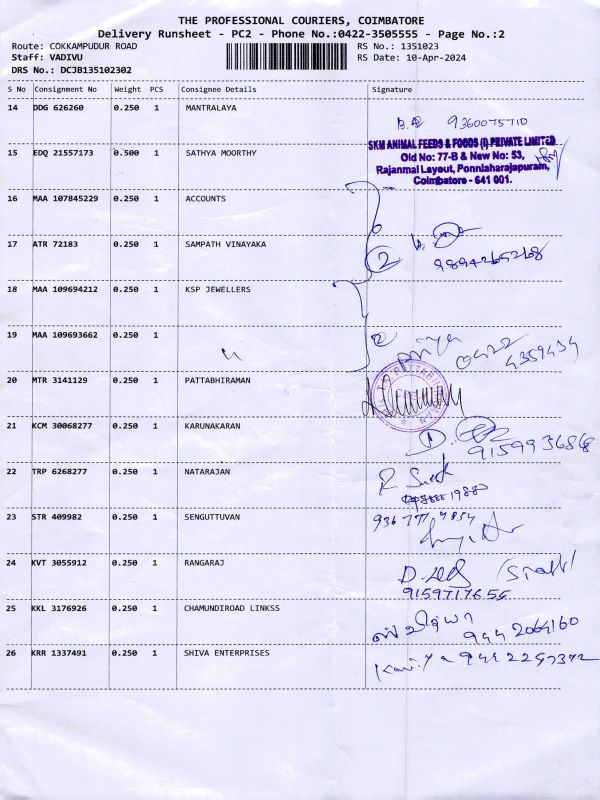 THE PROFESSIONAL COURIERS, COIMBATORE
Delivery Runsheet - PC2 - Phone No.:0422-3505555 - Page No.:2
Route: COKKAMPUDUR ROAD
Staff: VADIVU
DRS No.: DCJB135102302
RS No.: 1351023
RS Date: 10-Apr-2024
S No Consignment No Weight PCS Consignee Details Signature
14 DDG 626260 0.250 1 MANTRALAYA
9360075710
SKM ANIMAL FEEDS & FOODS (I) PRIVATE LIMITED
Old No: 77-B & New No: 53,
Rajanmal Layout, Ponniaharajapuram,
Coimbatore - 641 001.
15 EDQ 21557173 0.500 1 SATHYA MOORTHY
16 MAA 107845229 0.250 1 ACCOUNTS
17 ATR 72183 0.250 1 SAMPATH VINAYAKA
2
9894265268
18 MAA 109694212 0.250 1 KSP JEWELLERS
19 MAA 109693662 0.250 1
2 Priya 0422
4359434
20 MTR 3141129 0.250 1 PATTABHIRAMAN
21 KCM 30068277 0.250 1 KARUNAKARAN
9159936868
22 TRP 6268277 0.250 1 NATARAJAN
23 STR 409982 0.250 1 SENGUTTUVAN
24 KVT 3055912 0.250 1 RANGARAJ
9159717656
25 KKL 3176926 0.250 1 CHAMUNDIROAD LINKSS
9442064160
26 KRR 1337491 0.250 1 SHIVA ENTERPRISES
Kaviya 9442297372